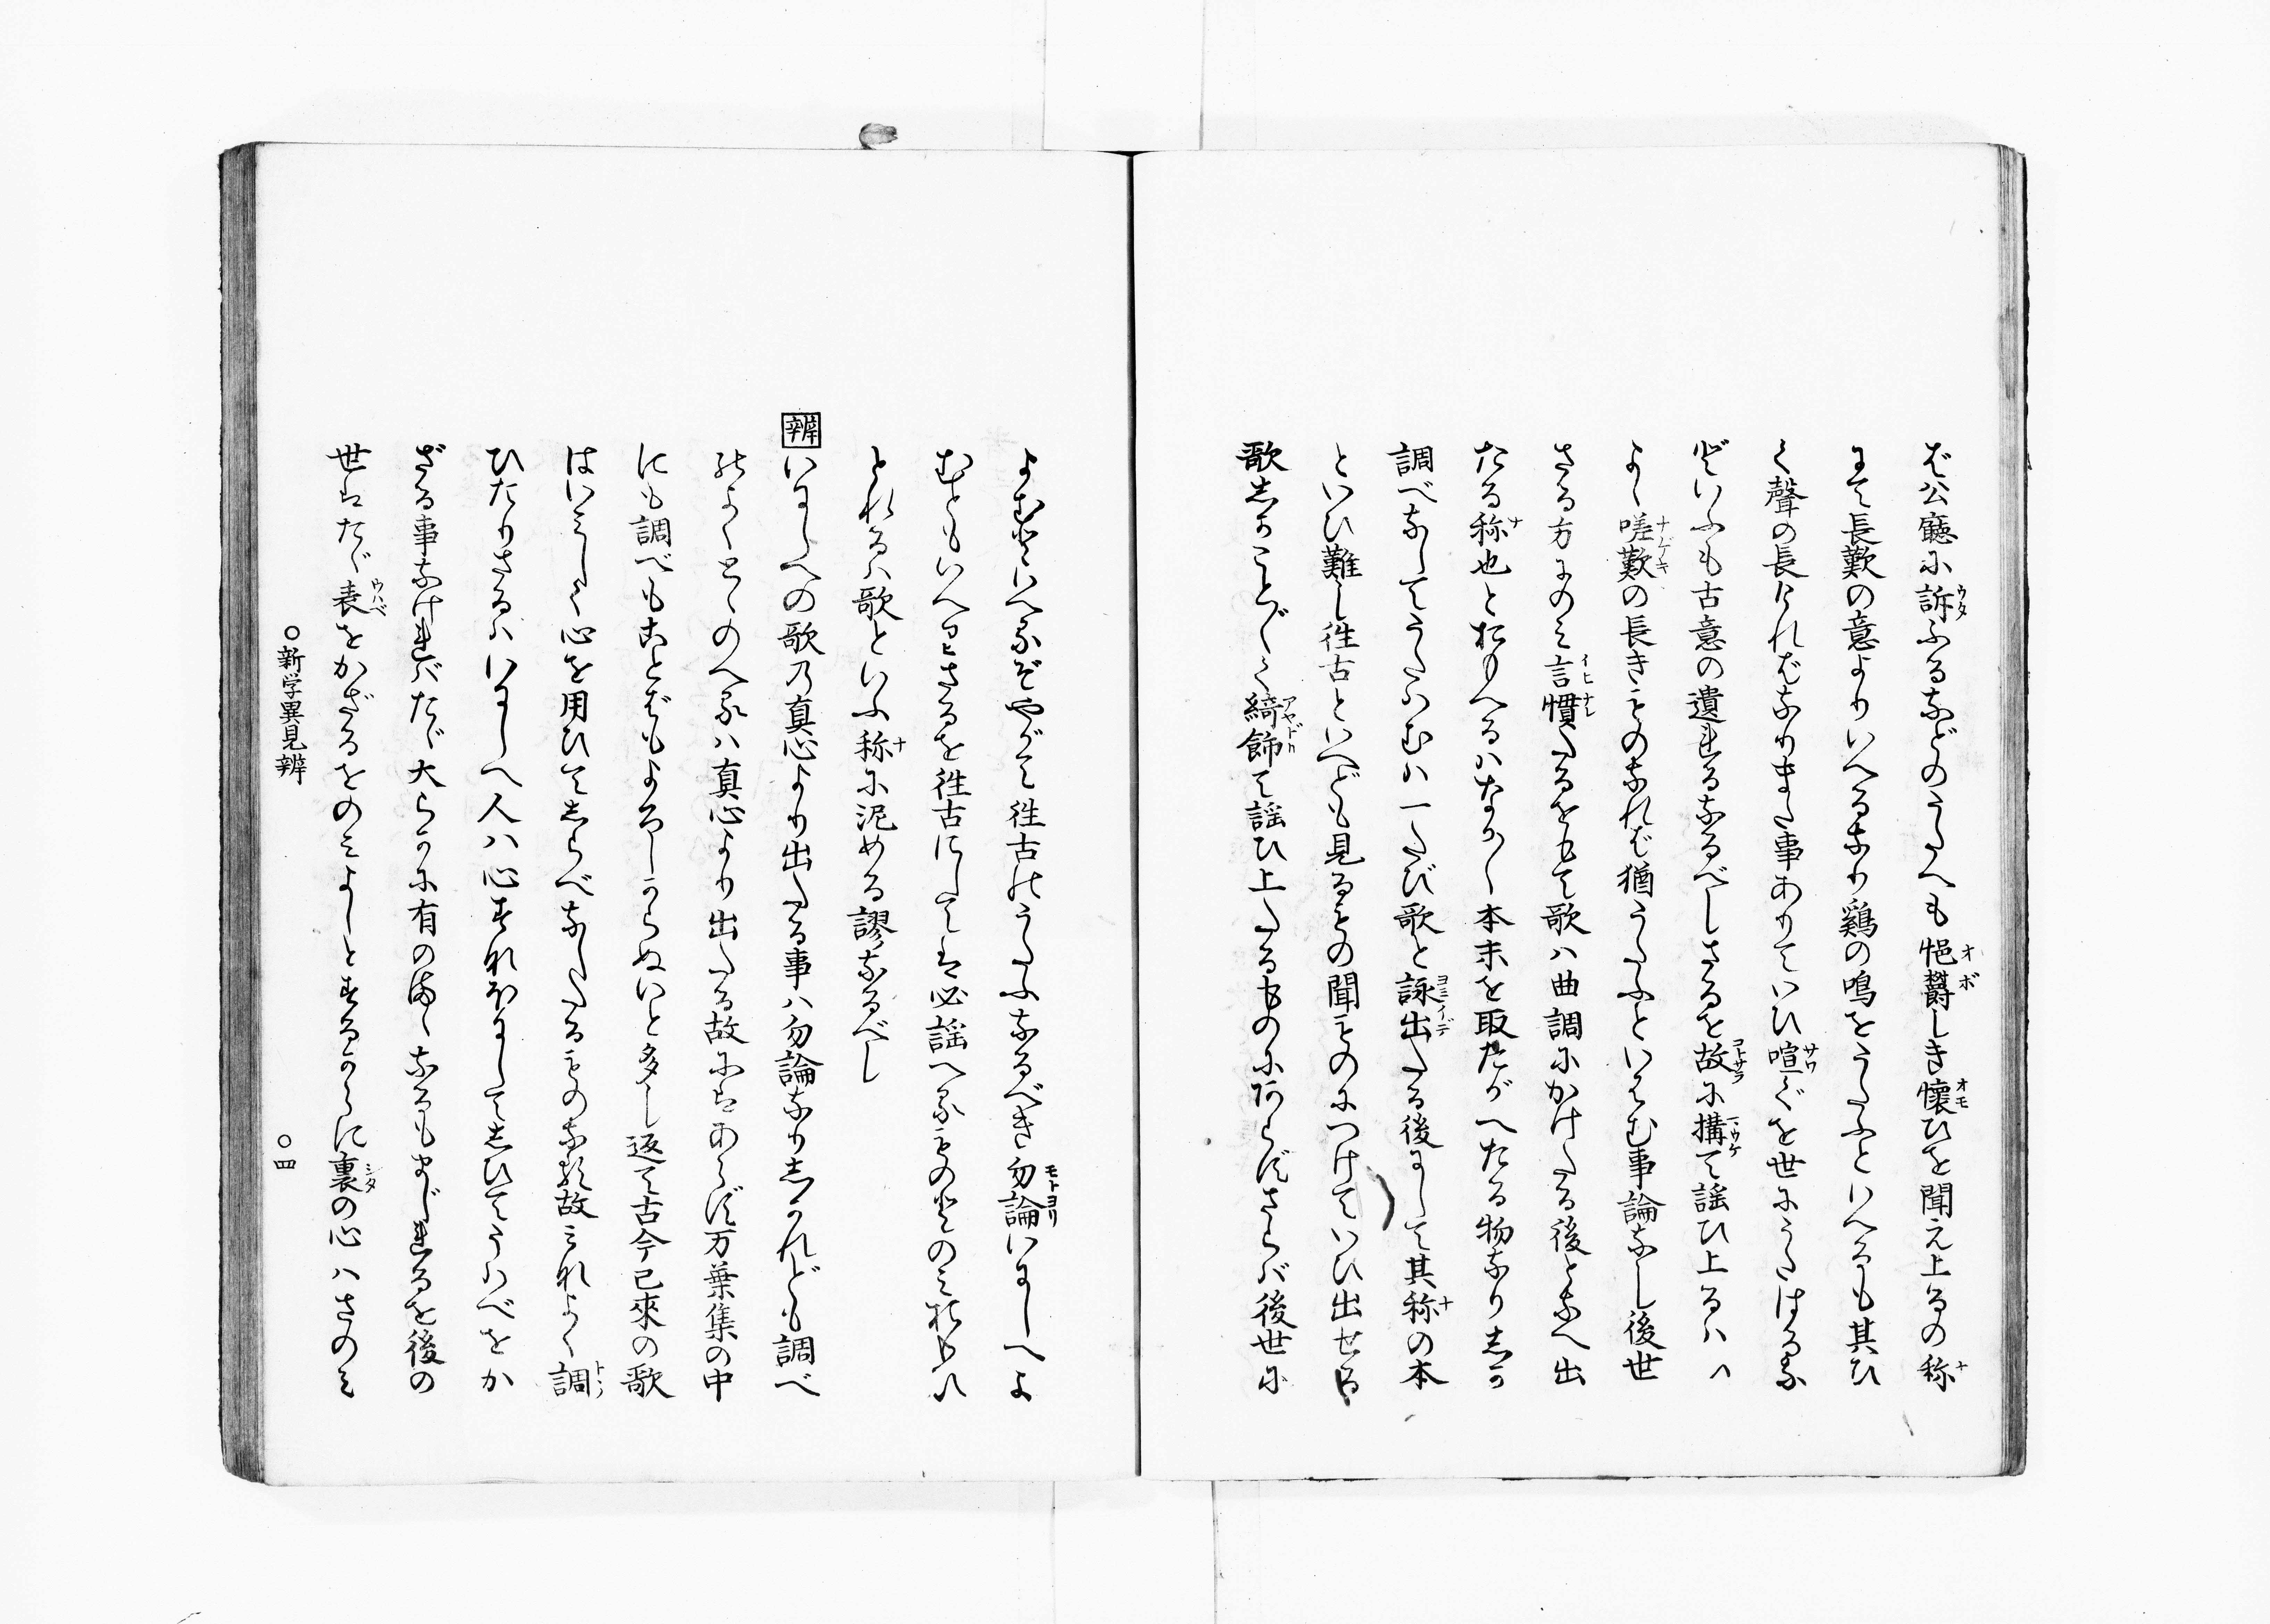 ば公廳に訴ふるなどのうたへも悒欝しき懐ひを聞え上るの称
にて長歎の意よりいへるなり鶏の鳴をうたふといへるも其ひ
く聲の長ければなりまた事ありていひ喧ぐを世にうたはるな
どいふも古意の遺れるなるべしさるを故に搆て謡ひ上るハハ
よく嗟歎の長きものなれば猶うたふといはむ事論なし後世
さる方にのミ言慣たるをもて歌ハ曲調にかけたる後となへ出
たる称也とおもへるハなか〱本末を取たがへたる物なり志か
調べなしてうたハむハ一たび歌と詠出たる後にして其称の本
といひ難し徃古といへども見るもの聞ものにつけていひ出せる
歌志かこと〲く綺飾て謡ひ上たるものにあらずさらバ後世に
よむといへるぞやがて徃古のうたふなるべき勿論いにしへよ
むともいへりさるを徃古にしては必謡へるものとのミおもひ
とれるハ歌といふ称に泥める謬なるべし
辨 いにしへの歌乃真心より出たる事ハ勿論なり志かれども調べ
のよくとゝのへるハ真心より出たる故にはあらず万葉集の中
にも調べもことばもよろしからぬいと多し返て古今已來の歌
はいミしく心を用ひて志らべなしたるものなる故ミれよく調
ひたりさるハいにしへ人ハ心すなほにして志ひてうハべをか
ざる事なければたゞ大らかに有のまゝなるもまじれるを後の
世はたゞ表をかざるをのミよしとするからに裏の心ハさのミ
○新学異見辨
○四